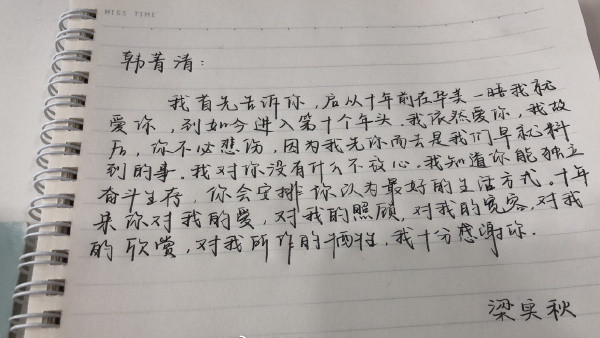 MISS TIME
韩菁清:
我首先告诉你,启从十年前在华美一晤我就
爱你,到如今进入第十个年头,我依然爱你,我故
后,你不必悲伤,因为我先你而去是我们早就料
到的事.我对你没有什么不放心,我知道你能独立
奋斗生存,你会安排你以为最好的生活方式。十年
来你对我的爱,对我的照顾,对我的宽容,对我
的欣赏,对我所作的牺牲,我十分感谢你.
梁实秋